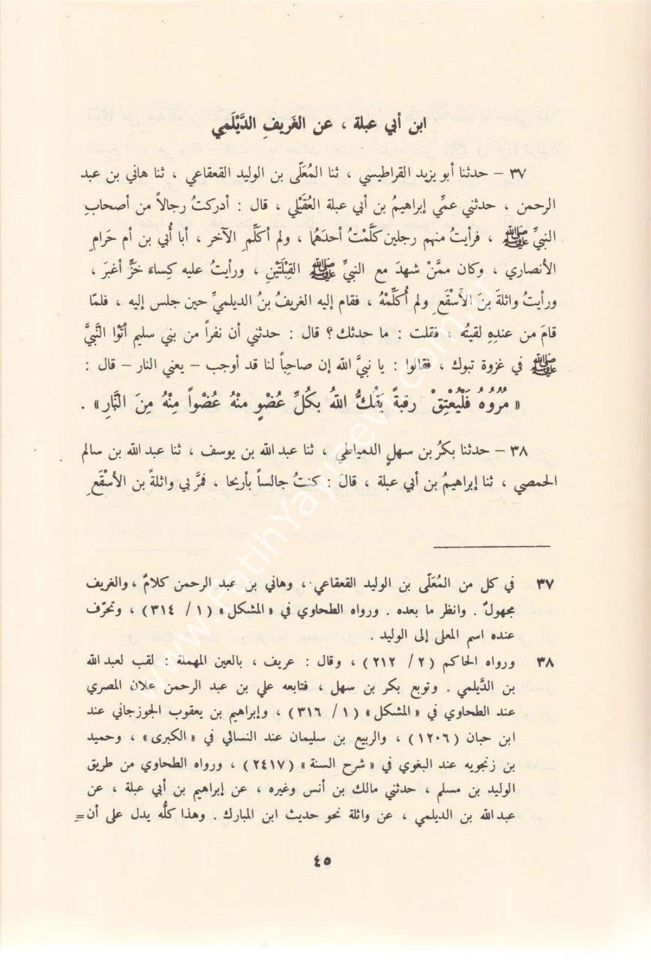 ابن أبي عبلة ، عن الغَريفِ الدَّيْلَمي
٣٧ – حدثنا أبو يزيد القراطيسي ، ثنا المُعَلّى بن الوليد القعقاعي ، ثنا هاني بن عبد
الرحمن ، حدثني عمِّي إبراهيمُ بن أبي عبلة العُقَيْلي ، قال : أدركتُ رجالاً من أصحابِ
النبيِّ ﷺ ، فرأيتُ منهم رجلين كَلَّمْتُ أحدَهُما ، ولم أكلِّمِ الآخر ، أبا أُبي بن أم حَرامِ
الأنصاري ، وكان ممَّنْ شهدَ مع النبيِّ ﷺ القِبْلَتَيْنِ ، ورأيتُ عليه كِساءَ خَزٍّ أغبَرَ ،
ورأيتُ واثلة بنَ الأَسْقَعِ ولم أُكلِّمْهُ ، فقام إليه الغريفُ بنُ الديلميِّ حين جلس إليه ، فلمّا
قامَ من عندِه لقيتُه ، فقلت : ما حدثك؟ قال : حدثني أن نفراً من بني سليم أتوْا النَّبيَّ
ﷺ في غزوة تبوك ، فقالوا : يا نبيَّ الله إن صاحباً لنا قد أوجب – يعني النار – قال :
« مُرُوهُ فَلْيُعْتِقْ رقبةً يَفُكُّ اللهُ بكُلِّ عُضْوٍ منْهُ عُضْواً مِنْهُ مِنَ النَّارِ » .
٣٨ – حدثنا بكرُ بن سهلٍ الدمياطي ، ثنا عبد الله بن يوسف ، ثنا عبد الله بن سالم
الحمصي ، ثنا إبراهيمُ بن أبي عبلة ، قالَ : كنتُ جالساً بأريحا ، فمرَّ بي واثلةُ بن الأسْقَعِ
٣٧ في كل من المُعَلّى بن الوليد القعقاعي ، وهاني بن عبد الرحمن كلامٌ ، والغريف
مجهولٌ . وانظر ما بعده . ورواه الطحاوي في « المشكل » (١ / ٣١٤) ، وتحرّف
عنده اسم المعلى إلى الوليد .
٣٨ ورواه الحاكم (٢ / ٢١٢) ، وقال : عريف ، بالعين المهملة : لقب لعبدالله
بن الدَّيلمي . وتوبع بكر بن سهل ، فتابعه علي بن عبد الرحمن علان المصري
عند الطحاوي في « المشكل » (١ / ٣١٦) ، وإبراهيم بن يعقوب الجوزجاني عند
ابن حبان (١٢٠٦) ، والربيع بن سليمان عند النسائي في « الكبرى » ، وحميد
بن زنجويه عند البغوي في « شرح السنة » (٢٤١٧) ، ورواه الطحاوي من طريق
الوليد بن مسلم ، حدثني مالك بن أنس وغيره ، عن إبراهيم بن أبي عبلة ، عن
عبدالله بن الديلمي ، عن واثلة نحو حديث ابن المبارك . وهذا كلُّه يدل على أن =
٤٥